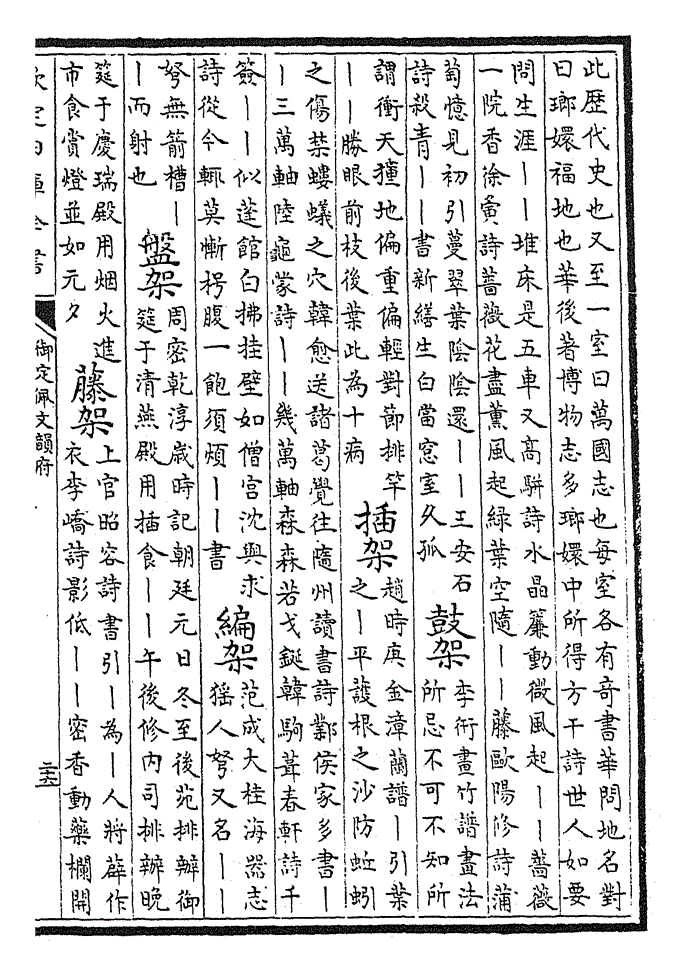 此歴代史也又至一室曰萬國志也每室各有奇書華問地名對
曰瑯嬛福地也華後著博物志多瑯嬛中所得方干詩世人如要
問生涯丨丨堆床是五車又高駢詩水晶簾動微風起丨丨薔薇
一院香徐夤詩薔薇花盡薰風起綠葉空隨丨丨藤歐陽修詩蒲
萄憶見初引蔓翠葉陰陰還丨丨王安石
詩殺青丨丨書新繕生白當窓室久孤
鼓架
李衎畫竹譜畫法
所忌不可不知所
謂衝天撞地偏重偏輕對節排竿
丨丨勝眼前枝後葉此為十病
插架
趙時庚金漳蘭譜丨引葉
之丨平䕶根之沙防蚯蚓
之傷禁螻蟻之穴韓愈送諸葛覺往隨州讀書詩鄴侯家多書丨
丨三萬軸陸龜蒙詩丨丨幾萬軸森森若戈鋋韓駒葺春軒詩千
簽丨丨似蓬館白拂挂壁如僧宫沈與求
詩從今輙莫慚枵腹一飽須煩丨丨書
編架
范成大桂海器志
猺人弩又名丨丨
弩無箭槽丨
丨而射也
盤架
周密乾淳歲時記朝廷元日冬至後苑排辦御
筵于清燕殿用插食丨丨午後修内司排辦晚
筵于慶瑞殿用烟火進
市食賞燈並如元夕
藤架
上官昭容詩書引丨為丨人將薜作
衣李嶠詩影低丨丨密香動藥欄開
欽定四庫全書
御定佩文韻府
二十六